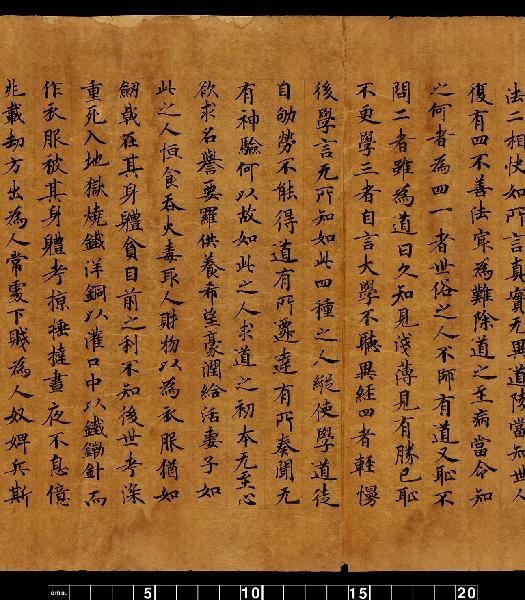 法二相快如所言真實无異道陵當知世人
復有四不善法宷為難除道之至病當令知
之何者為四一者世俗之人不師有道又恥不
問二者雖為道日久知見淺薄見有勝己恥
不更學三者自言大學不聽異經四者輕慢
後學言无所知如此四種之人縱使學道徒
自劬勞不能得道有所遷達有所奏聞无
有神驗何以故如此之人求道之初本无至心
欲求名譽要羅供養希望豪潤給活妻子如
此之人恒食吞火毒取人財物以為衣服猶如
劒戟在其身體貪目前之利不知後世考深
重死入地獄燒鐵洋銅以灌口中以鐵鏘針而
作衣服被其身體考掠棰撻晝夜不息億
兆載劫方出為人常處下賤為人奴婢兵斯